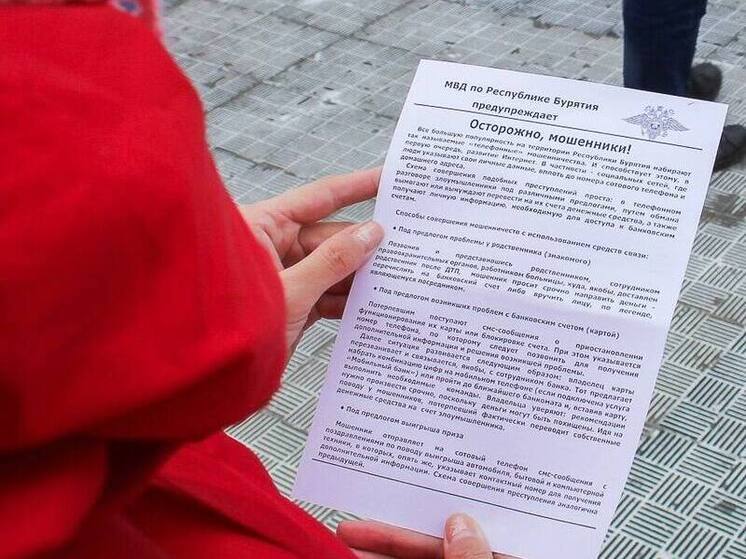 МВД по Республике Бурятия
предупреждает
Осторожно, мошенники!
Все большую популярность на территории Республики Бурятия набирают
так называемые «телефонные» мошенничества. И способствует этому, в
первую очередь, развитие Интернет. В частности - социальных сетей, где
люди указывают свои личные данные, вплоть до номера сотового телефона и
домашнего адреса.
Схема совершения подобных преступлений проста: в телефонном
разговоре злоумышленники под различными предлогами, путем обмана
вымогают или вынуждают перевести на их счета денежные средства, а также
получают личную информацию, необходимую для доступа к банковским
счетам.
Способы совершения мошенничеств с использованием средств связи:
• Под предлогом проблемы у родственника (знакомого)
Позвонив и представившись родственником, сотрудником
правоохранительных органов, работником больницы, куда, якобы, доставлен
родственник после ДТП, мошенник просит срочно направить деньги -
перечислить на банковский счет либо вручить лицу, по легенде,
являющемуся посредником.
• Под предлогом возникших проблем с банковским счетом (картой)
Потерпевшим поступают смс-сообщения о приостановлении
функционирования их карты или блокировке счета. При этом указывается
номер телефона, по которому следует позвонить для получения
дополнительной информации и решения возникшей проблемы.
Далее ситуация развивается следующим образом: владелец карты
перезванивает и связывается, якобы, с сотрудником банка. Тот предлагает
набрать комбинацию цифр на мобильном телефоне (если подключена услуга
«Мобильный банк») или пройти до ближайшего банкомата и, вставив карту,
выполнить необходимые команды. Владельца уверяют: рекомендации
нужно произвести срочно, поскольку деньги могут быть похищены. Идя на
поводу у мошенников, потерпевший фактически переводит собственные
денежные средства на счет злоумышленника.
• Под предлогом выигрыша приза
Мошенник отправляет на сотовый телефон смс-сообщения с
поздравлениями по поводу выигрыша автомобиля, бытовой и компьютерной
техники, в которых, опять же, указывает контактный номер для получения
дополнительной информации. Схема совершения преступления аналогична
предыдущей.